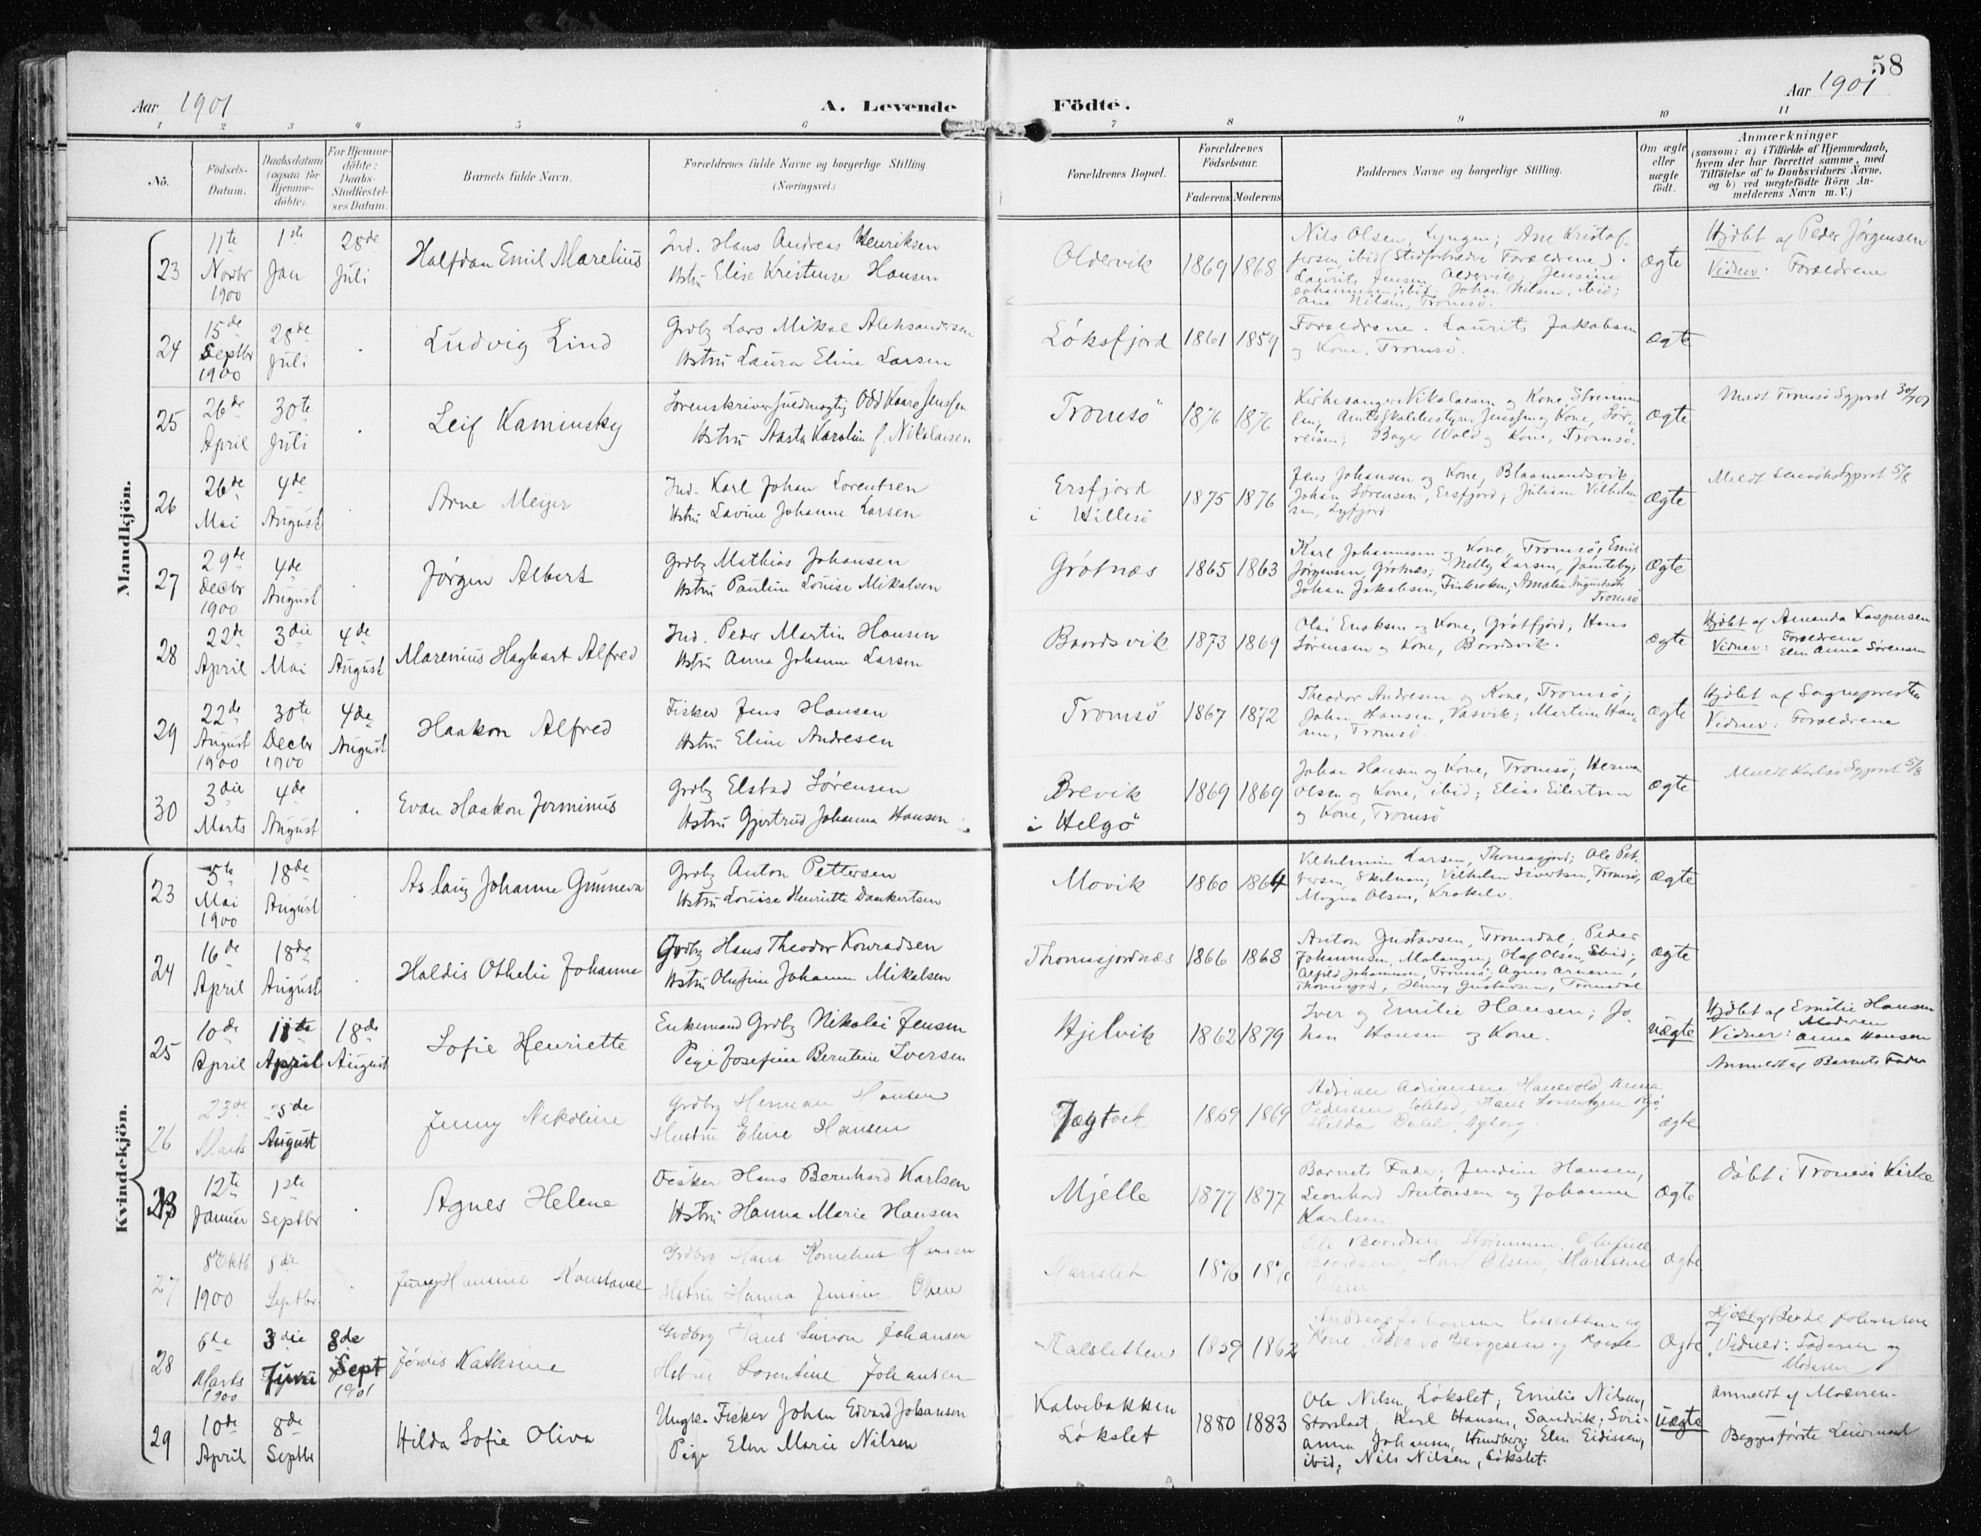 58
Aar 1901
A. Levende
Födte.
Aar 1901
1 2 3 4 5 6 7 8 9 10 11
Nö.
Födsels-
Datum.
Daabsdatum
(ogsaa for
Hjemme-
döbte).
For Hjemme-
döbte:
Daabs-
Stadfæstel-
ses Datum.
Barnets fulde Navn.
Forældrenes fulde Navne og borgerlige Stilling
(Næringsvei.)
Forældrenes Bopæl.
Forældrenes
Födselsaar.
Faderens Moderens
Faddernes Navne og borgerlige Stilling.
Om ægte
eller
uægte
födt.
Anmærkninger
(saasom: a) i Tilfælde af Hjemmedaab,
hvem der har forrettet samme, med
Tilföielse af to Daabsvidners Navne,
og b) ved uægtefödte Börn An-
melderens Navn m. V.)
Mandkjön.
23
11te
Novbr
1900
1ste
Jan
28de
Juli
Halfdan Emil Marelius
Ind. Hans Andreas Henriksen
Hstru Elise Kristense Hansen
Oldervik
1869 1868
Nils Olsen, Lyngen; Ane Kristof-
fersen, ibid (Stedfortrædre Forældrene).
Laurits Jensen, Oldervik; Jensine
Johannesen, ibid; Johan Nilsen, ibid;
Ane Nilsen, Tromsö.
ægte
Hjdbt af Peder Jørgensen
Vidner: Forældrene
24
15de
Septbr
1900
28de
Juli
Ludvig Lind
Grdbr Lars Mikal Aleksandersen
Hstru Laura Eline Larsen
Løksfjord
1861 1859
Forældrene. Laurits Jakobsen
og Kone, Tromsö.
ægte
25
26de
April
30te
Juli
Leif Kaminsky
Sorenskriverfuldmægtig Odd Kaare Jenssen
Hstru Aasta Karoline f. Nikolaisen
Tromsö
1876 1876
Kirkesanger Nikolaisen og Kone,
og Kone, Tromsö.
ægte
Meldt Tromsö Sgprst 30/7 01
26
26de
Mai
4de
August
Arne Meyer
Ind. Karl Johan Lorentsen
Hstru Lavine Johanne Larsen
Ersfjord
i Hillesö
1875 1876
Jens Johansen og Kone, Blaamandsvik,
Johan Sørensen, Ersfjord; Juliane Vilhelm-
sen,
ægte
Meldt Sgprst 5/8
27
29de
Decbr
1900
4de
August
Jørgen Albert
Grdbr Mathias Johansen
Hstru Pauline Louise Mikalsen
Grötnæs
1865 1863
Karl Johannesen og Kone, Tromsö, Emil
Jørgensen, Grötnæs; Nelly Larsen,
Johan Jakobsen, Finkroken, Amalie
Tromsö
ægte
28
22de
April
3die
Mai
4de
August
Marenius Hagbart Alfred
Ind. Peder Martin Hansen
Hstru Anna Johanne Larsen
Baardsvik
1873 1869
Olai Enoksen og Kone, Grötfjord, Hans
Sørensen og Kone, Baardsvik.
ægte
Hjdbt af Amanda Kaspersen
Forældrene
Vidner: Elen Anna Sørensen
29
22de
August
1900
30te
Decbr
1900
4de
August
Haakon Alfred
Fisker Jens Hansen
Hstru Eline Andresen
Tromsö
1867 1872
Theodor Andresen og Kone, Tromsö;
Johan Hansen, Vasvik; Martin Han-
sen, Tromsö.
ægte
Hjdbt af Sogneprsten
Vidner: Forældrene
30
3die
Marts
4de
August
Evan Haakon Jerminus
Grdbr Elstad Sørensen
Hstru Gjertrud Johanna Hansen
Brevik
i Helgö
1869 1869
Johan Hansen og Kone, Tromsö, Herman
Olsen og Kone, ibid; Elias Eilertsen
og Kone, Tromsö
ægte
Meldt Karlsö Sgprst 5/8
Kvindekjön.
23
5te
Mai
1900
18de
August
Aslaug Johanne Gunneva
Grdbr Anton Pettersen
Hstru Louise Henriette Dankertsen
Movik
1860 1864
Vilhelmine Larsen, Thomasjord; Ole Pet-
tersen, Skilnan, Vilhelm Sivertsen, Tromsö,
Magna Olsen, Krokelv.
ægte
24
16de
April
18de
August
Haldis Othelie Johanne
Grdbr Hans Theodor Konradsen
Hstru Olufine Johanne Mikalsen
Thomasjordnæs
1866 1868
Anton Gustavsen, Tromsdal; Peder
Johannesen, Malangen; Olaf Olsen, ibid;
Alfred Johannesen, Tromsö; Agnes
Thomasjord, Jenny Gustavsen, Tromsdal
ægte
25
10de
April
11te
April
18de
August
Sofie Henriette
Enkemand Grdbr Nikolai Jensen
Pige Josefine Berntine Iversen
Hjelvik
1862 1879
Iver og Emilie Hansen; Jo-
han Hansen og Kone.
uægte
Hjdbt af Emilie Hansen
Moderen
Vidner: Anna Hansen
Anmeldt af Barnets Fader
26
23de
Marts
25de
August
Jenny Nikoline
Grdbr Herman Hansen
Hustru Eline Hansen
Jægtvik
1859 1869
Adrian Adriansen,
Pedersen
Hilda
ægte
23
12te
Januar
1ste
Septbr
Agnes Helene
Fisker Hans Bernhard Karlsen
Hstru Hanna Marie Hansen
Mjelle
1877 1877
Barnets Fader; Jendine Hansen,
Leonhard Antonsen og Johanne
Karlsen.
ægte
Döbt i Tromsö Kirke
27
8 Oktb
1900
8de
Septbr
Jenny Hansine Konstance
Grdbr Hans Kornelius Hansen
Hstru Hanna Jensine Olsen
1876 1876
Ole Baardsen
Baardsen, Karl Olsen,
Olsen
ægte
28
6de
Marts
1900
3die
Juni
8de
Sept
1901
Jördis Kathrine
Grdbr Hans Simon Johansen
Hstru Lorentine Johansen
Kalsletten
1859 1862
Andreas Johansen Kalsletten og
Kone,
ægte
Vidner: Faderen og
Moderen
29
10de
April
8de
Septbr
Hilda Sofie Oliva
Ungk. Fisker Johan Edvard Johansen
Pige Elen Marie Nilsen
Kalvebakken
Løkslet
1880 1883
Ole Nilsen, Løkslet; Emilie Nilsen,
Storslaat; Karl Hansen, Sandvik;
Johansen, Hundberg; Elen Eidissen,
ibid, Nils Nilsen, Løkslet.
uægte
Anmeldt af Moderen.
Begges förste Leiermaal